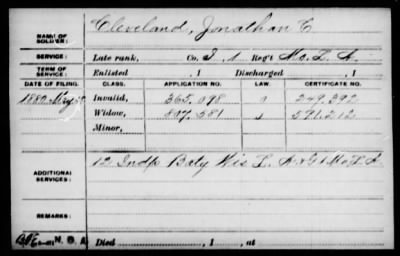 NAME OF SOLDIER: Cleveland, Jonathan C
SERVICE: Late rank, Co. I, 1 Reg't Mo. L. A.
TERM OF SERVICE: Enlisted , 1 Discharged , 1
DATE OF FILING. CLASS. APPLICATION NO. LAW. CERTIFICATE NO.
1882 Invalid, 365.098 249.392
Widow, 807.581 591.212
Minor,
ADDITIONAL SERVICES: 12 Indp Baty Wis L. A. & G 1 Mo L A
REMARKS:
N. O. A. Died , 1 , at